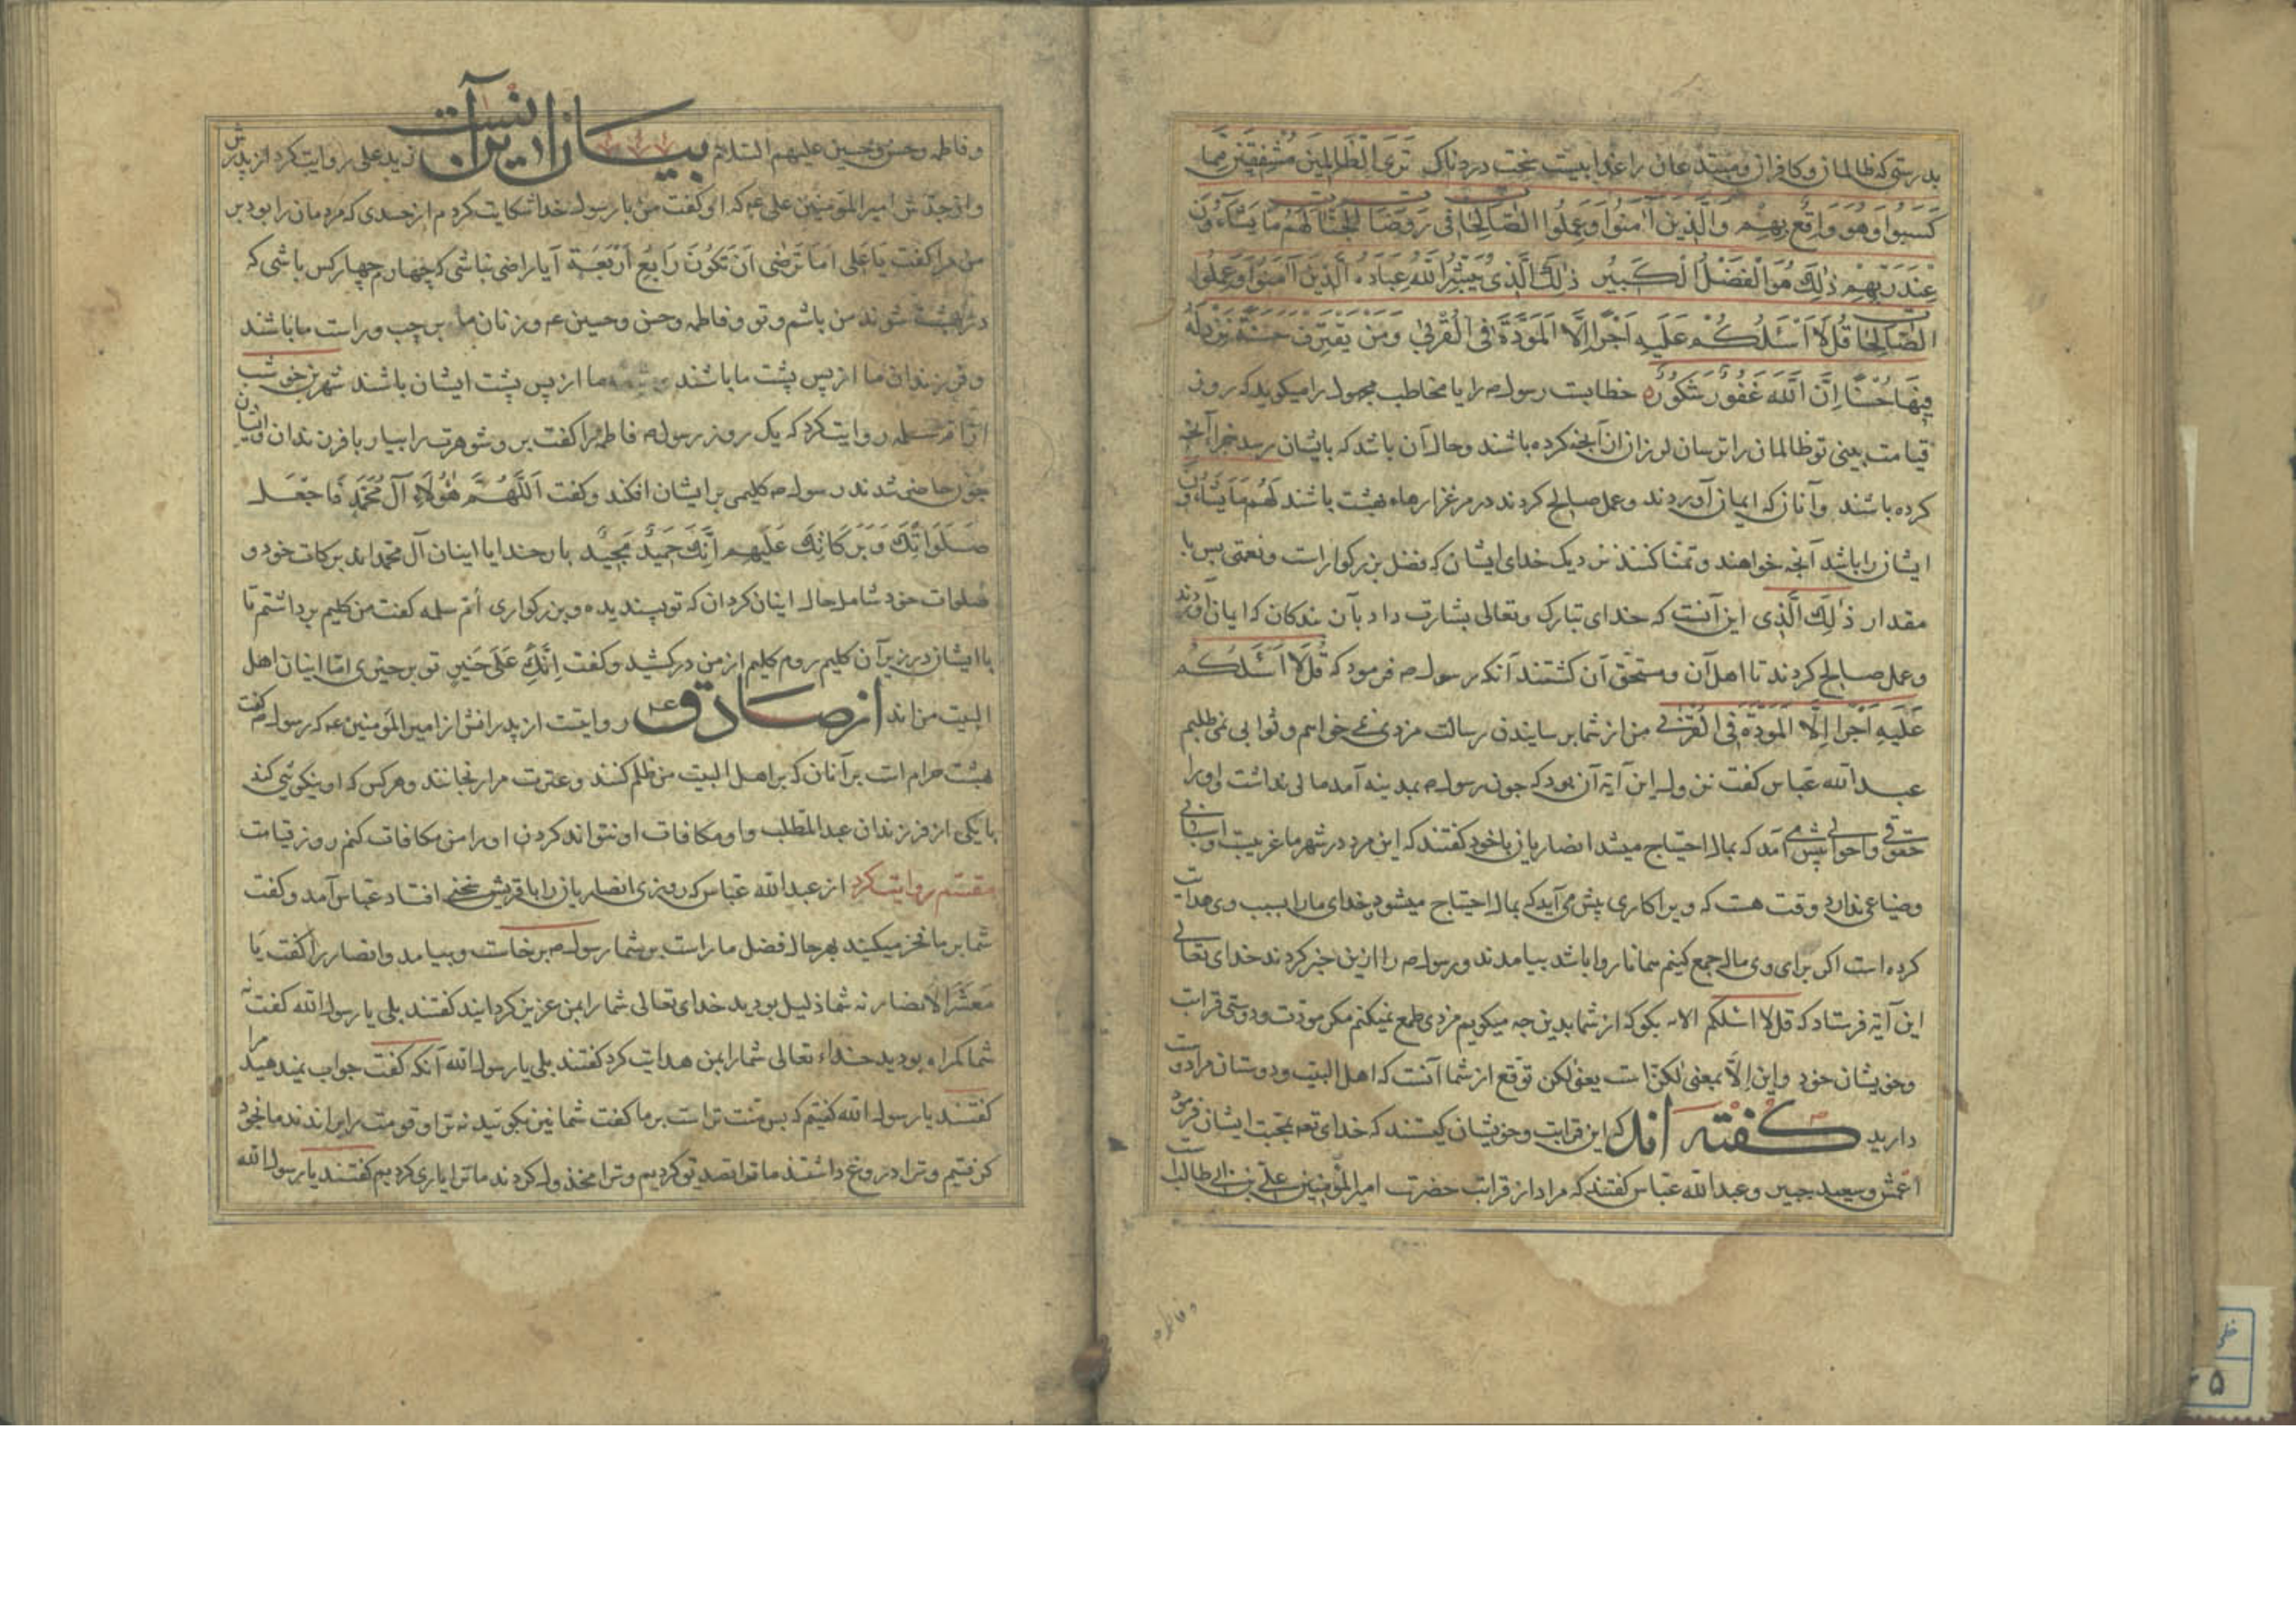 بدرستی که ظالمان و کافران و مبتدعان را عذابیست سخت دردناک تَرَی الظَّالِمِینَ مُشْفِقِینَ مِمَّا
کَسَبُوا وَهُوَ وَاقِعٌ بِهِمْ وَالَّذِینَ آمَنُوا وَعَمِلُوا الصَّالِحَاتِ فِی رَوْضَاتِ الْجَنَّاتِ لَهُمْ مَا یَشَاءُونَ
عِنْدَ رَبِّهِمْ ذٰلِکَ هُوَ الْفَضْلُ الْکَبِیرُ ذٰلِکَ الَّذِی یُبَشِّرُ اللّٰهُ عِبَادَهُ الَّذِینَ آمَنُوا وَعَمِلُوا
الصَّالِحَاتِ قُلْ لَا اَسْئَلُکُمْ عَلَیْهِ اَجْرًا اِلَّا الْمَوَدَّةَ فِی الْقُرْبٰی وَمَنْ یَقْتَرِفْ حَسَنَةً نَزِدْ لَهُ
فِیهَا حُسْنًا اِنَّ اللّٰهَ غَفُورٌ شَکُورٌ خطابست رسول ص را یا مخاطب مجهول را میکوید که روز
قیامت یعنی تو ظالمان را ترسان لرزان از آنجه کرده باشند و حال آن باشد که بایشان رسد جزا آنجه
کرده باشند و آنان که ایمان آوردند و عمل صالح کردند در مرغزارهاء بهشت باشند لَهُمْ مَا یَشَاءُونَ
ایشان را باشد آنجه خواهند و تمنا کنند نزدیک خدای ایشان که فضل بزرکوار است و نعمتی بس با
مقدار ذٰلِکَ الَّذِی این آنست که خدای تبارک و تعالی بشارت داد بآن بندکان که ایمان آوردند
و عمل صالح کردند تا اهل آن و مستحق آن کشتند آنکه رسول ص فرمود که قُلْ لَا اَسْئَلُکُمْ
عَلَیْهِ اَجْرًا اِلَّا الْمَوَدَّةَ فِی الْقُرْبٰی من از شما برسانیدن رسالت مزدی نمی خواهم و ثوابی نمی طلبم
عبدالله عباس کفت نزول این آیة آن بود که جون رسول ص بمدینه آمد مالی نداشت و او را
حقوقی و احوالی پیش می آمد که بمال احتیاج میشد انصاریان باخود کفتند که این مرد در شهر ما غریبست و اسبابی
و ضیاعی ندارد و وقت هست که ویرا کاری پیش می آید که بمال احتیاج میشود و خدای ما را بسبب وی هدایت
کرده است اکر برای وی مالی جمع کنیم همانا روا باشد بیامدند و رسول ص را ازین خبر کردند خدای تعالی
این آیة فرستاد که قل لا اسئلکم الایه بکو که از شما بدین جه میکویم مزدی طمع نمیکنم مکر مودت و دوستی قرابت
و خویشان خود و این اِلّا بمعنی لٰکن است یعنی لکن توقع از شما آنست که اهل البیت و دوستان مرا دوست
دارید کفته اند که این قرابت و خویشان کیستند که خدای تعه بمحبت ایشان فرمود
اعمش و سعید جبیر و عبدالله عباس کفتند که مراد از قرابت حضرت امیرالمؤمنین علی بن ابی طالبست
و فاطمه
و فاطمه و حسن و حسین علیهم السلام بیان ایراد این آنست زید علی روایت کرد از پدرش
و از جدش امیرالمؤمنین علی عم که او کفت من با رسول خدا شکایت کردم از حسدی که مردمان را بود بر
من مرا کفت یَا عَلِی اَمَا تَرْضٰی اَنْ تَکُونَ رَابِعُ اَرْبَعَةٍ آیا راضی نباشی که چهارم چهار کس باشی که
در بهشت شوند من باشم و تو و فاطمه و حسن و حسین عم و زنان ما بر چپ و راست ما باشند
و فرزندان ما از پس پشت ما باشند ما از پس پشت ایشان باشند شهر بن حوشب
از ام سلمه روایت کرد که یک روز رسول ص فاطمه را کفت برو شوهرت را بیار با فرزندان و ایشان
جون حاضر شدند رسول ص کلیمی بر ایشان افکند و کفت اَللّٰهُمَّ هٰؤُلَاءِ آلُ مُحَمَّدٍ فَاجْعَلْ
صَلَوَاتِکَ وَبَرَکَاتِکَ عَلَیْهِمْ اِنَّکَ حَمِیدٌ مَجِیدٌ بار خدایا اینان آل محمداند برکات خود و
صلوات خود شامل حال اینان کردان که تو پسندیده و بزرکواری اُم سلمه کفت من کلیم برداشتم تا
با ایشان در زیر آن کلیم روم کلیم از من درکشید و کفت اِنَّکِ عَلٰی خَیْرٍ تو بر خیری اما اینان اهل
البیت من اند از صادق عم روایتست از پدرانش از امیرالمؤمنین عم که رسول ص کفت
بهشت حرام است بر آنان که بر اهل البیت من ظلم کنند و عترت مرا رنجانند و هرکس که او نیکوئی کند
با یکی از فرزندان عبدالمطلب و او مکافات او نتواند کردن او را من مکافات کنم روز قیامت
مقسم روایت کرد از عبدالله عباس که روزی انصاریان را با قریش سخنی افتاد عباس آمد و کفت
شما بر ما فخر میکنید بهر حال فضل ما راست بر شما رسول ص برخاست و بیامد و انصار را کفت یَا
مَعْشَرَ الْاَنْصَار نه شما ذلیل بودید خدای تعالی شما را بمن عزیز کردانید کفتند بلی یا رسول الله کفت نه
شما کمراه بودید خداء تعالی شما را بمن هدایت کرد کفتند بلی یا رسول الله آنکه کفت جواب نمیدهید مرا
کفتند یا رسول الله کفتیم که بس منت تراست بر ما کفت شما نیز بکوئید نه ترا و قومت براندند ما بخود
کرفتیم و ترا دروغ داشتند ما ترا تصدیق کردیم و ترا مخذول کردند ما ترا یاری کردیم کفتند یا رسول الله